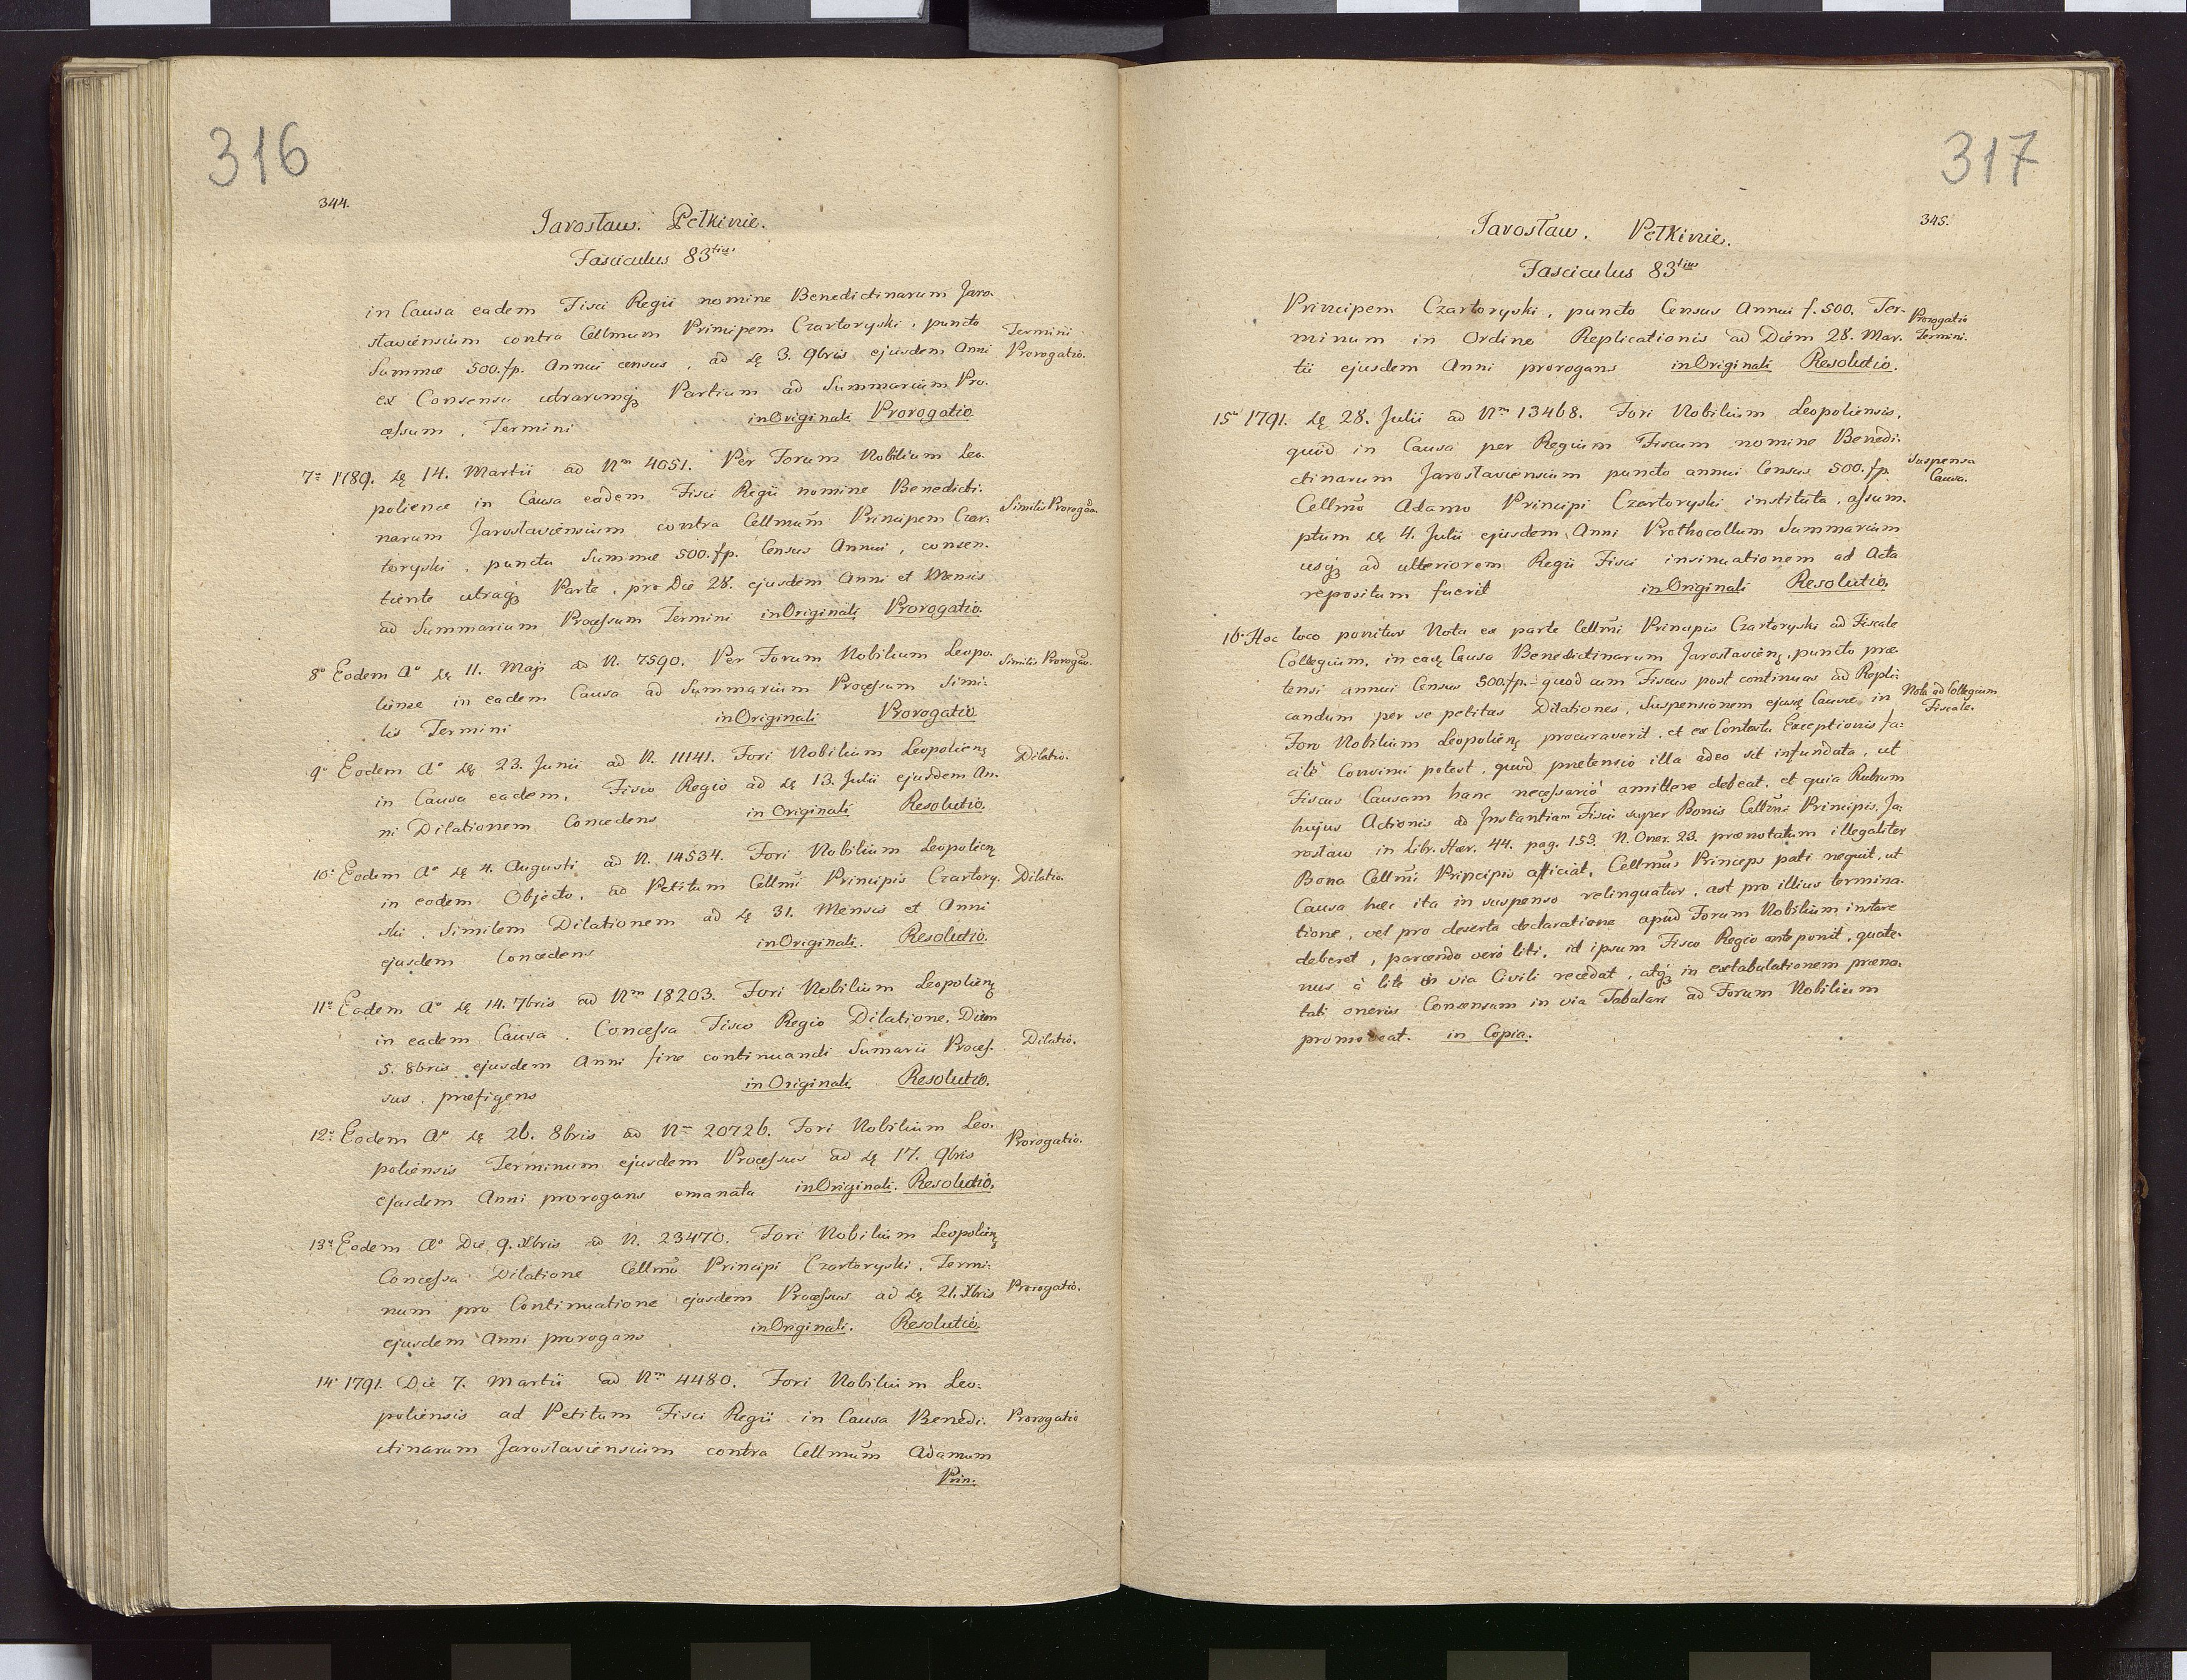 316
344.
Jarosław. Pełkinie.
Fasciculus 83tius
in Causa eadem Fisci Regii nomine Benedictinarum Jaro-
slaviensium contra Cellmum Principem Czartoryski, puncto
Termini
Summæ 500.fp. Annui census, ad dę 3. 9bris ejusdem Anni
Prorogatio.
ex Consensu utrarumq₃ Partium ad Summarium Pro-
cessum, Termini inOriginali Prorogatio
7º 1789. dę 14. Martii ad Nm 4051. Per Forum Nobilium Leo-
poliense in Causa eadem Fisci Regii nomine Benedicti-
narum Jaroslaviensium contra Cellmum Principem Czar-
Similis Prorogão.
toryski, puncto Summæ 500.fp. Census Annui, consen-
tiente utraq₃ Parte, pro Die 28. ejusdem Anni et Mensis
ad Summarium Processum Termini inOriginali Prorogatio.
8º Eodem Aº dę 11. Maji ad N. 7590. Per Forum Nobilium Leopo-
Similis Prorogão.
liense in eadem Causa ad Summarium Processum Simi-
lis Termini inOriginali Prorogatio
9º Eodem Aº dę 23. Junii ad N. 11141. Fori Nobilium Leopolienę
Dilatio.
in Causa eadem, Fisco Regio ad dę 13. Julii ejusdem An-
ni Dilationem Concedens in Originali Resolutio.
10º Eodem Aº dę 4. Augusti ad N. 14534. Fori Nobilium Leopolienę
in eodem Objecto, ad Petitum Cellmi Principis Czartory-
Dilatio.
ski, Similem Dilationem ad dę 31. Mensis et Anni
ejusdem Concedens inOriginali. Resolutio.
11º Eodem Aº dę 14. 7bris ad Nm 18203. Fori Nobilium Leopolienę
in eadem Causa, Concessa Fisco Regio Dilatione, Diem
5. 8bris ejusdem Anni fine continuandi Sumarii Proces-
Dilatio.
sus, præfigens inOriginali Resolutio.
12º Eodem Aº dę 26. 8bris ad Nm 20726. Fori Nobilium Leo-
Prorogatio.
poliensis Terminum ejusdem Processus ad dę 17. 9bris
ejusdem Anni prorogans emanata inOriginali. Resolutio.
13º Eodem Aº Die 9. Xbris ad N. 23470. Fori Nobilium Leopolienę
Concessa Dilatione Cellmo Principi Czartoryski, Termi-
num pro Continuatione ejusdem Processus ad dę 21. Xbris
Prorogatio.
ejusdem Anni prorogans inOriginali. Resolutio.
14º 1791. Die 7. Martii ad Nm 4480. Fori Nobilium Leo-
poliensis ad Petitum Fisci Regii in Causa Benedi-
Prorogatio
ctinarum Jaroslaviensium contra Cellmum Adamum
Prin-
317
345.
Jarosław. Pełkinie.
Fasciculus 83tius
Principem Czartoryski, puncto Census Annui f.500. Ter-
Prorogatio
minum in Ordine Replicationis ad Diem 28. Mar-
Termini.
tii ejusdem Anni prorogans inOriginali Resolutio.
15º 1791. dę 28. Julii ad Nm 13468. Fori Nobilium Leopoliensis,
quod in Causa per Regium Fiscum nomine Benedi-
ctinarum Jaroslaviensium puncto annui Census 500.fp.
Suspensa
Causa.
Cellmo Adamo Principi Czartoryski instituta, assum-
ptum dę 4. Julii ejusdem Anni Prothocollum Summarium
usq₃ ad ulteriorem Regii Fisci insinuationem ad Acta
repositum fuerit inOriginali Resolutio.
16º Hoc loco ponitur Nota ex parte Cellmi Principis Czartoryski ad Fiscale
Collegium, in eadę Causa Benedictinarum Jaroslavienę, puncto præ-
tensi annui Census 500.fp. quod cum Fiscus post continuas ad Repli-
Nota ad Collegium
candum per se petitas Dilationes, Suspensionem ejusdę Causæ in
Fiscale.
Foro Nobilium Leopolienę procuraverit, et ex Contextu Exceptionis fa-
cilè Convinci potest, quod prætensio illa adeo sit infundata, ut
Fiscus Causam hanc necessariò amittere debeat, et quia Rubrum
hujus Actionis ad Instantiam Fisci super Bonis Cellmi Principis, Ja-
rosław in Libr. Hær. 44. pag. 153. N. Oner. 23. prænotatum illegaliter
Bona Cellmi Principis afficiat, Cellmus Princeps pati nequit, ut
Causa hæc ita in suspenso relinquatur, ast pro illius termina-
tione, vel pro deserta declaratione apud Forum Nobilium instare
deberet, parcendo verò liti, id ipsum Fisco Regio anteponit, quate-
nus à lite in via Civili recedat, atq₃ in extabulationem præno-
tati oneris Consensum in via Tabulari ad Forum Nobilium
promoveat. in Copia.